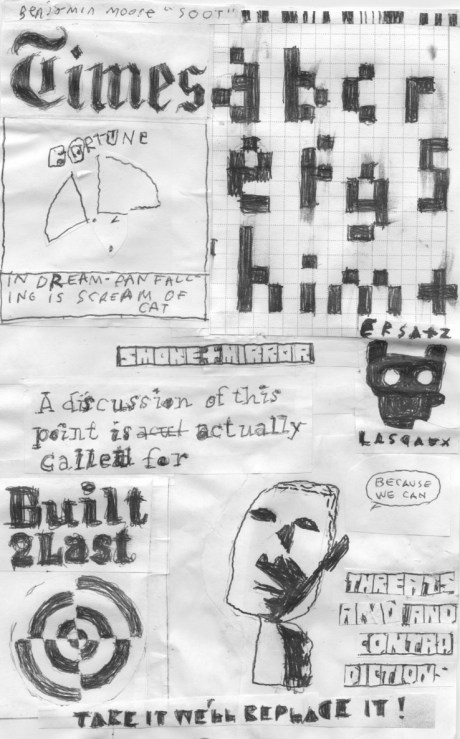 BENJAMIN MOORE "SOOT"
Times
a b c r
e f g s
h i m t
FORTUNE
IN DREAM-PAN FALL-
ING IS SCREAM OF
CAT
ERSATZ
SMOKE + MIRROR
LASCAUX
A discussion of this
point is actually
called for
BECAUSE
WE CAN
Built
2Last
THREATS
AND AND
CONTRA
DICTIONS
TAKE IT WE'LL REPLACE IT!